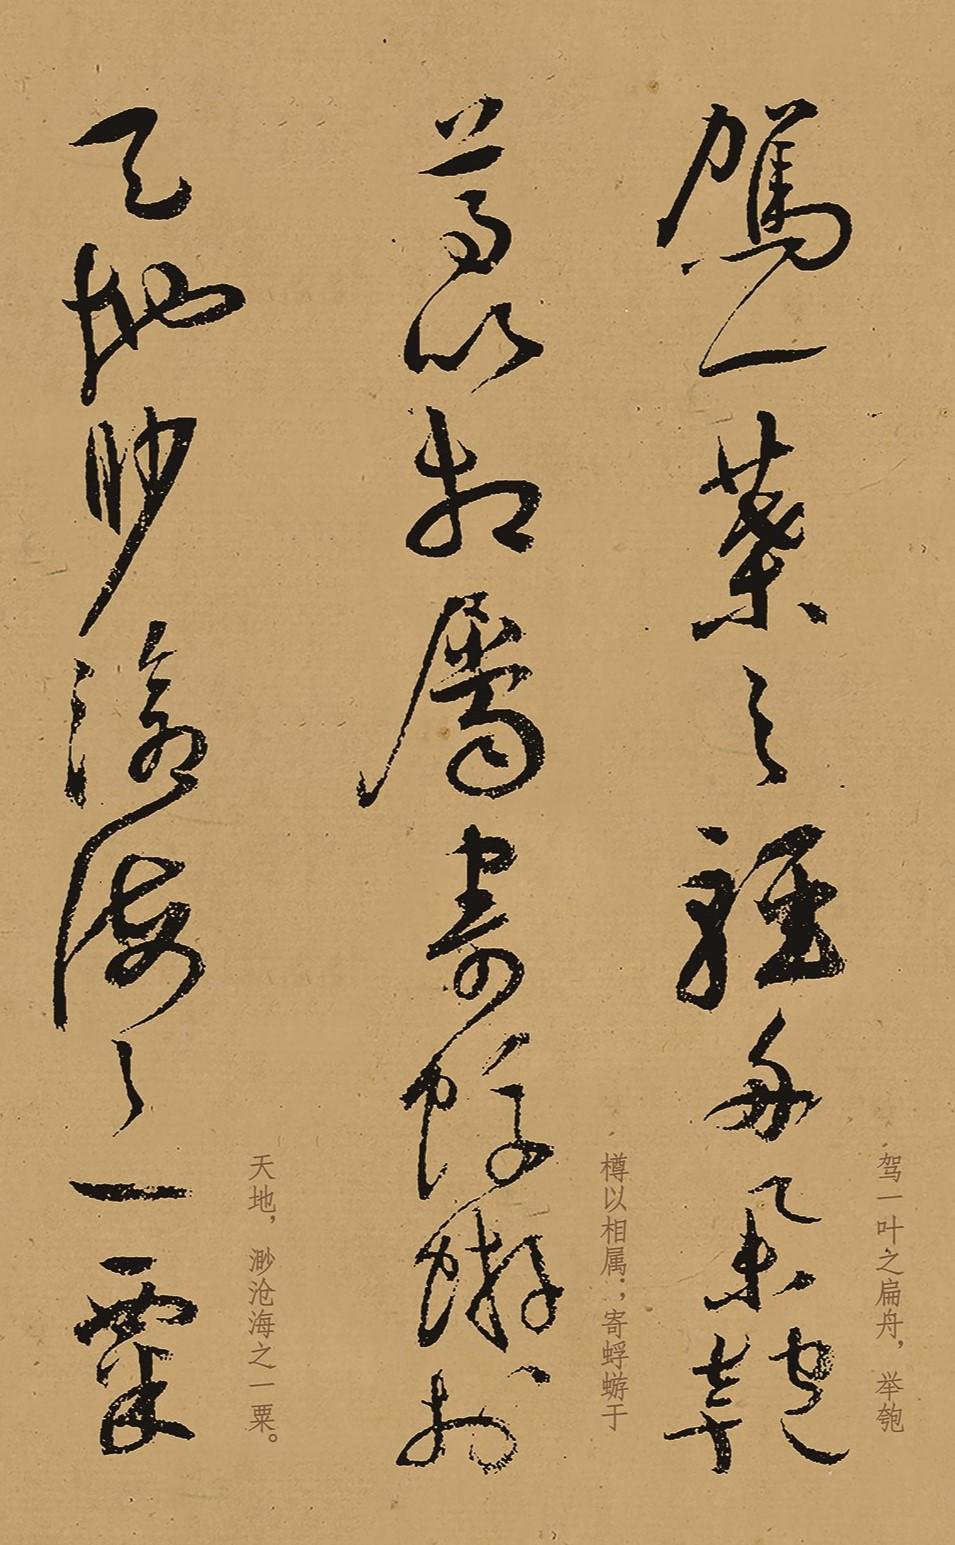 驾一叶之扁舟，举匏
駕一葉之輕舟舉匏
樽以相属；寄蜉蝣于
尊以相屬寄蜉蝣於
天地，渺沧海之一粟。
天地眇滄海之一粟